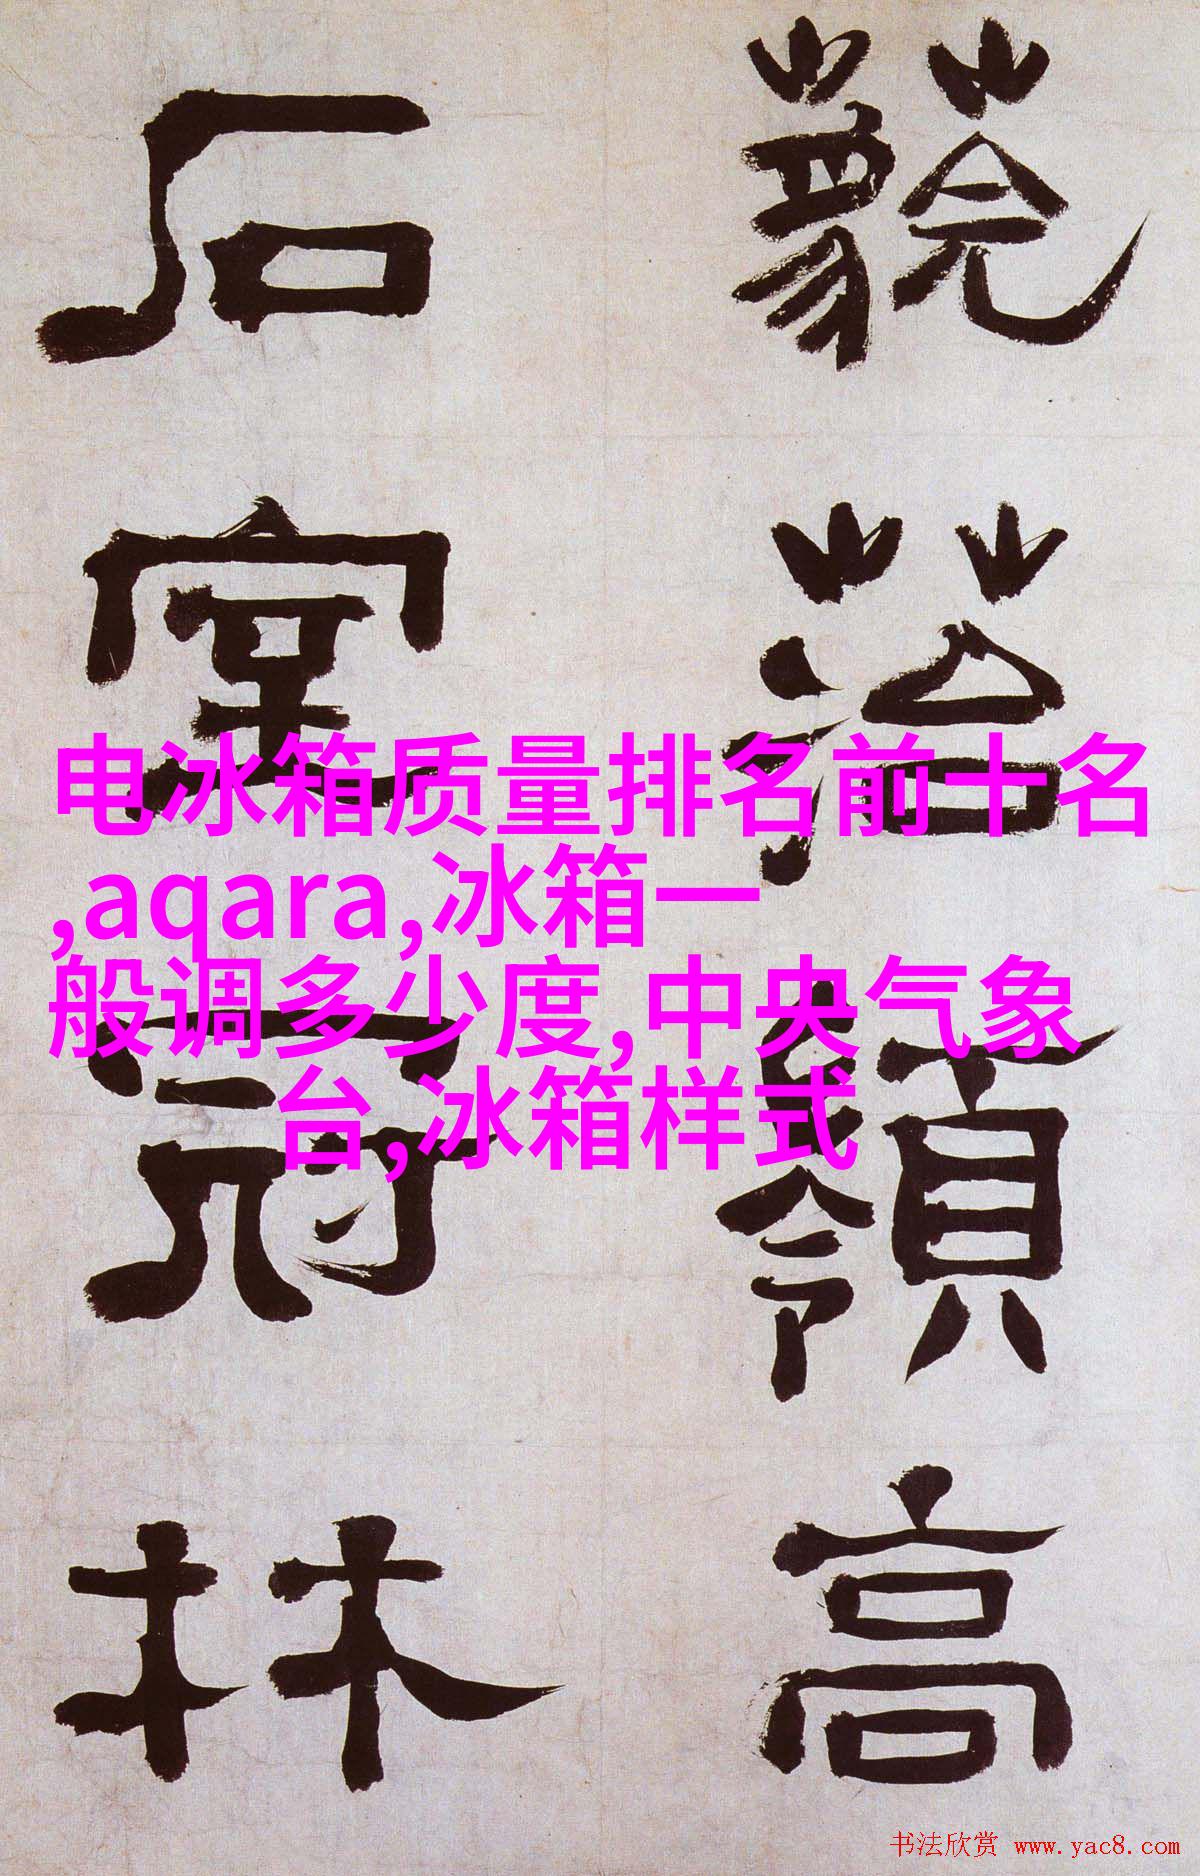 藐落嶺高
石室冠林
电冰箱质量排名前十名
,aqara,冰箱一
般调多少度,中央气象
台,冰箱样式
书法欣赏 www.yac8.com